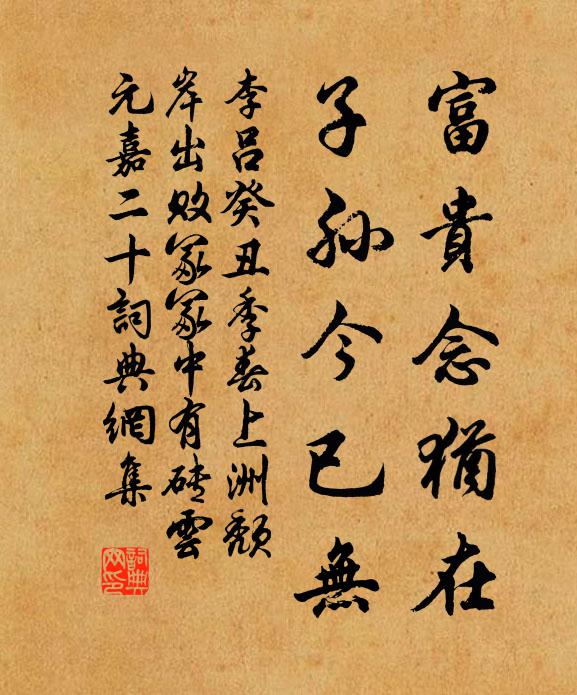 富貴念猶在
子孫今已無
李呂癸丑季春上洲頹
岸出敗冢冢中有磚雲
元嘉二十詞典網集
詞典
网印